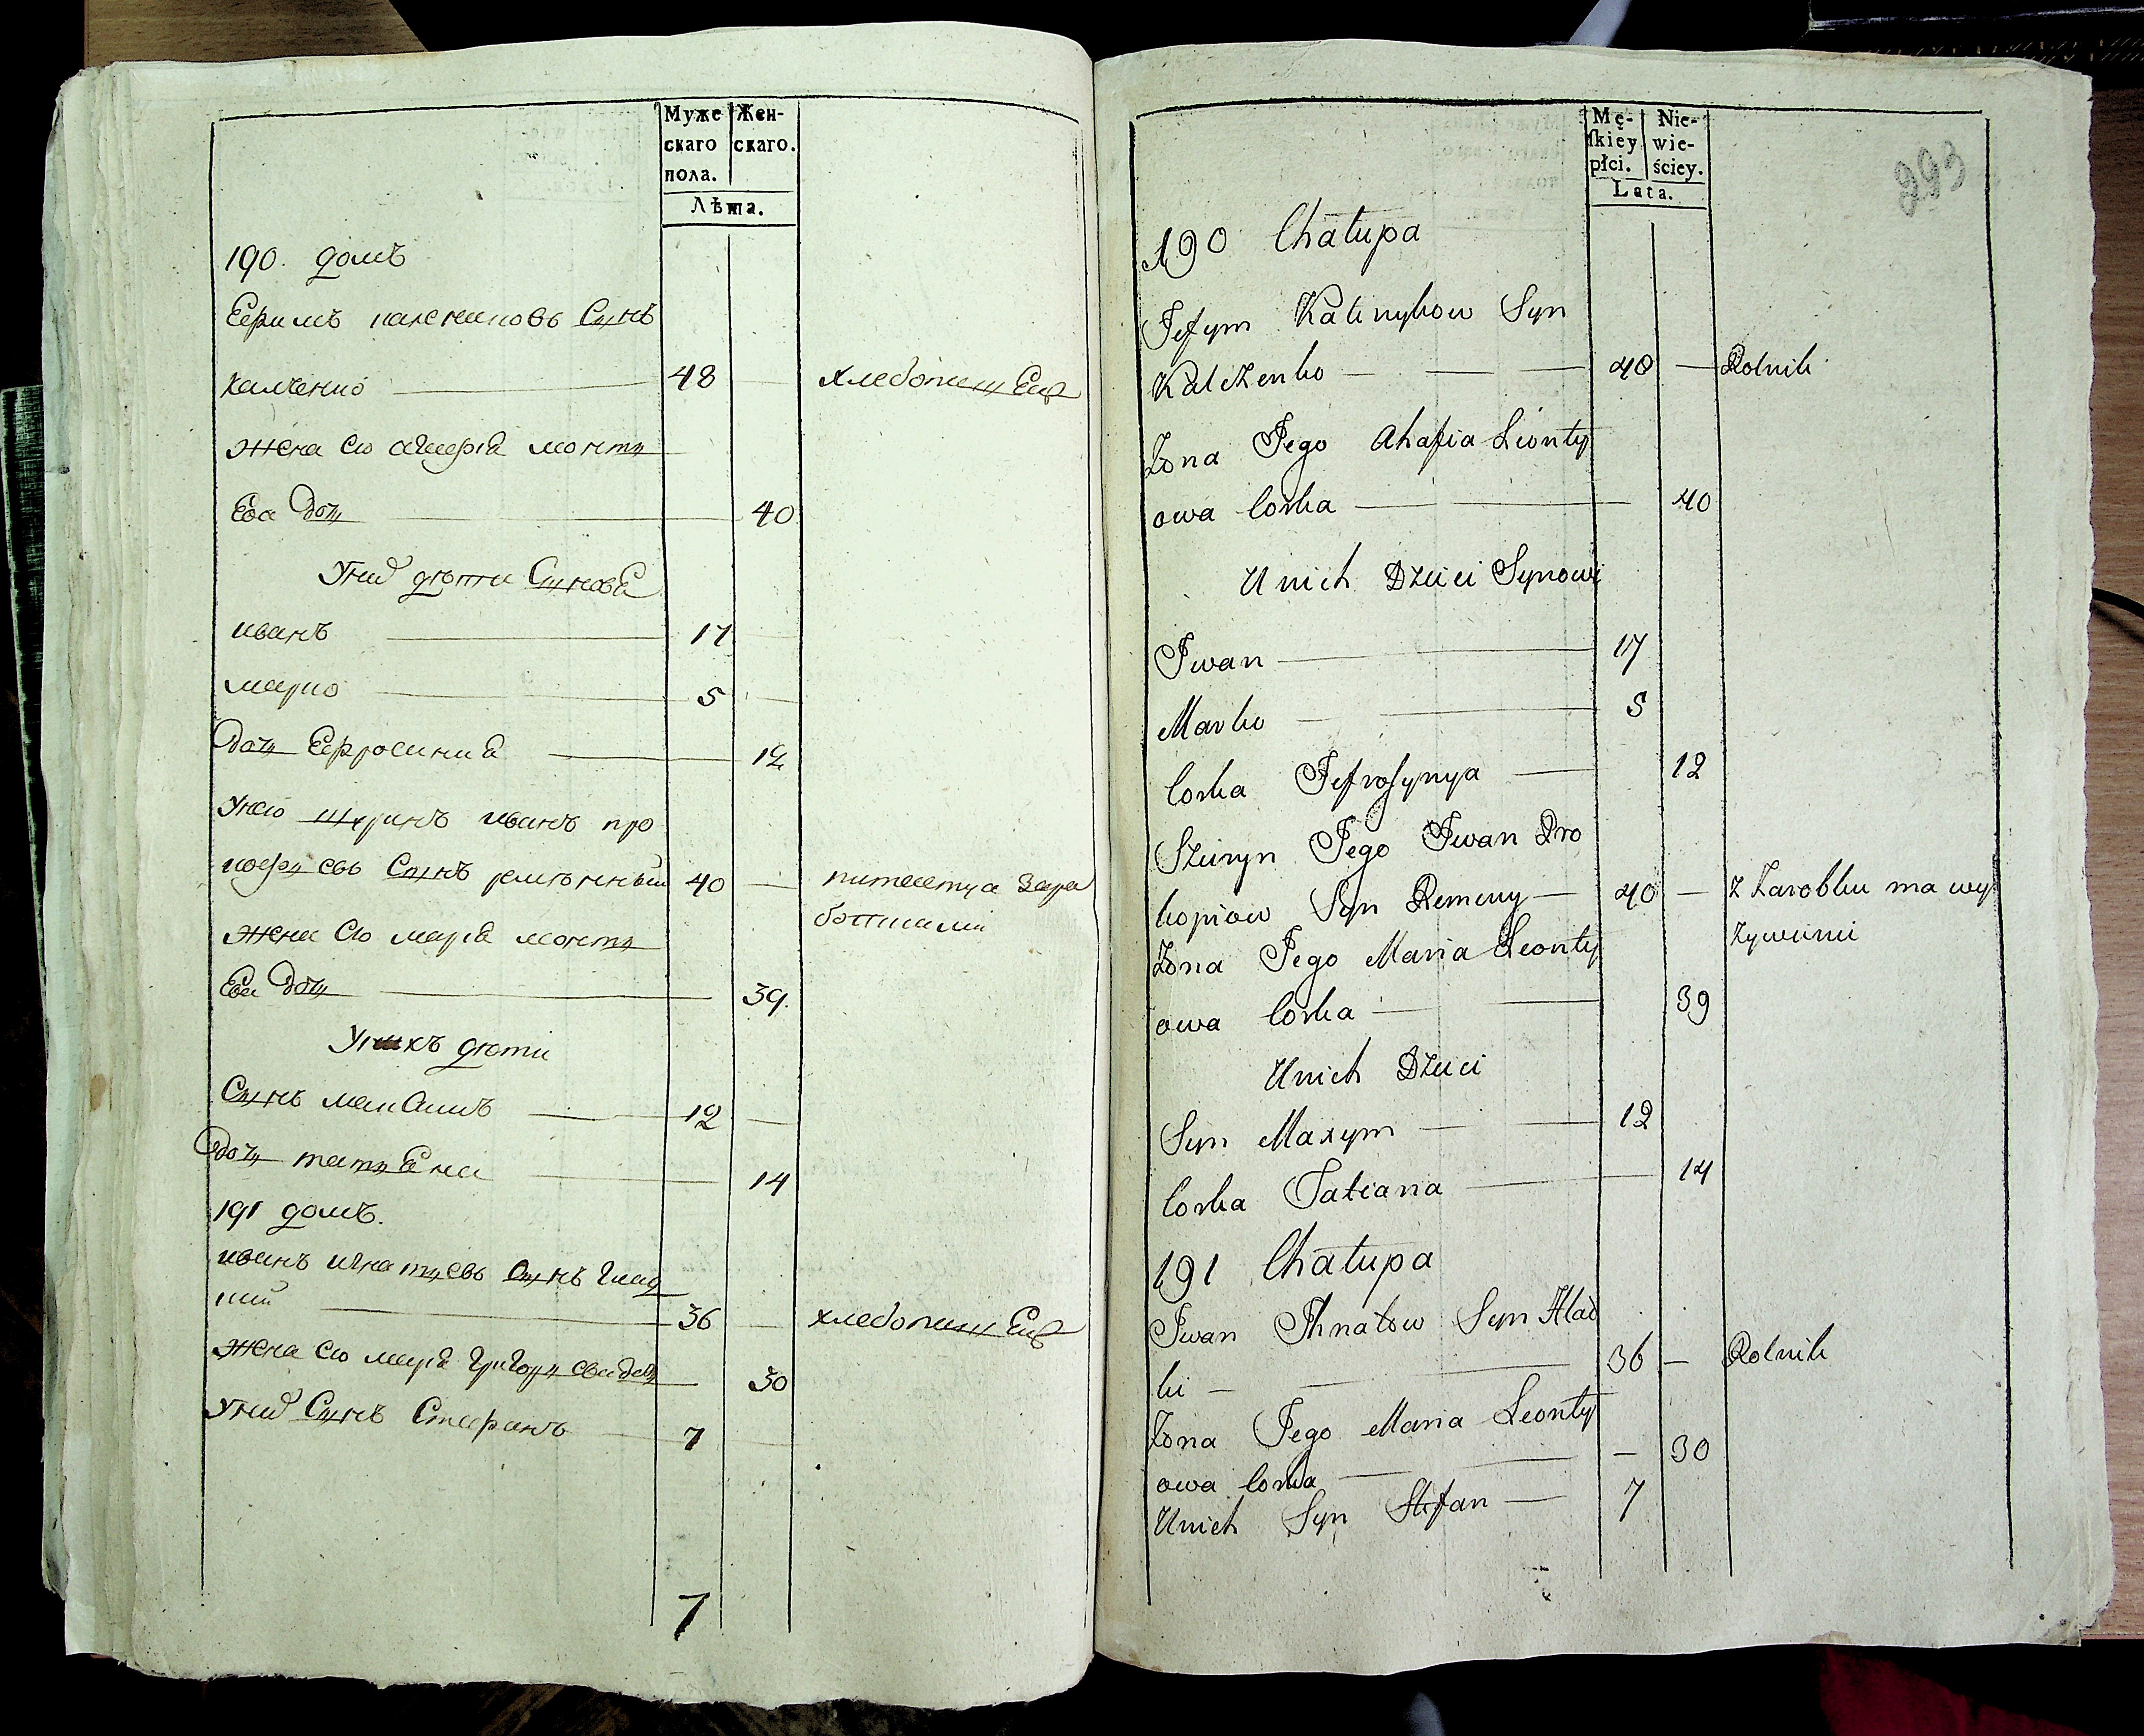 Муже
скаго
пола.
Жен-
скаго.
Лѣта.
190. домъ
Ефимъ калениковъ Сынъ
калченко 48 хлебопашецъ
жена его агафiа леонты
Ева дочь 40
У них дѣти Синове
иванъ 17
марко 5
дочь Ефросиниа 12
У него шуринъ иванъ про
кофьевъ Сынъ ременный 40 питается зара
ботками
жена его марiа леонты
Ева дочь 39.
У нихъ дѣти
Сынъ максимъ 12
дочь татьЕна 14
191 домъ.
иванъ игнатьевъ Сынъ глад
кий 36 хлебопашецъ
жена его марiа григорьева дочь 30
У них Сынъ Стефанъ 7
7
Mę-
ſkiey
płci.
Nie-
wie-
ściey.
Lata.
293
190 Chałupa
Jefym Kalinykow Syn
Kalczenko 48 Rolnik
Zona Jego Ahafia Leonty
owa Corka 40
U nich Dzieci Synowi
Jwan 17
Marko 5
Corka Jefrosynya 12
Szuryn Jego Jwan Pro
kopiow Syn Remeny 40 z Zarobku ma wy
zywieni
Zona Jego Maria Leonty
owa Corka 39
U nich Dzieci
Syn Maxym 12
Corka Tatiana 14
191 Chałupa
Jwan Jhnatow Syn Hlad
ki 36 Rolnik
Zona Jego Maria Leonty
owa Corka 30
U nich Syn Stefan 7